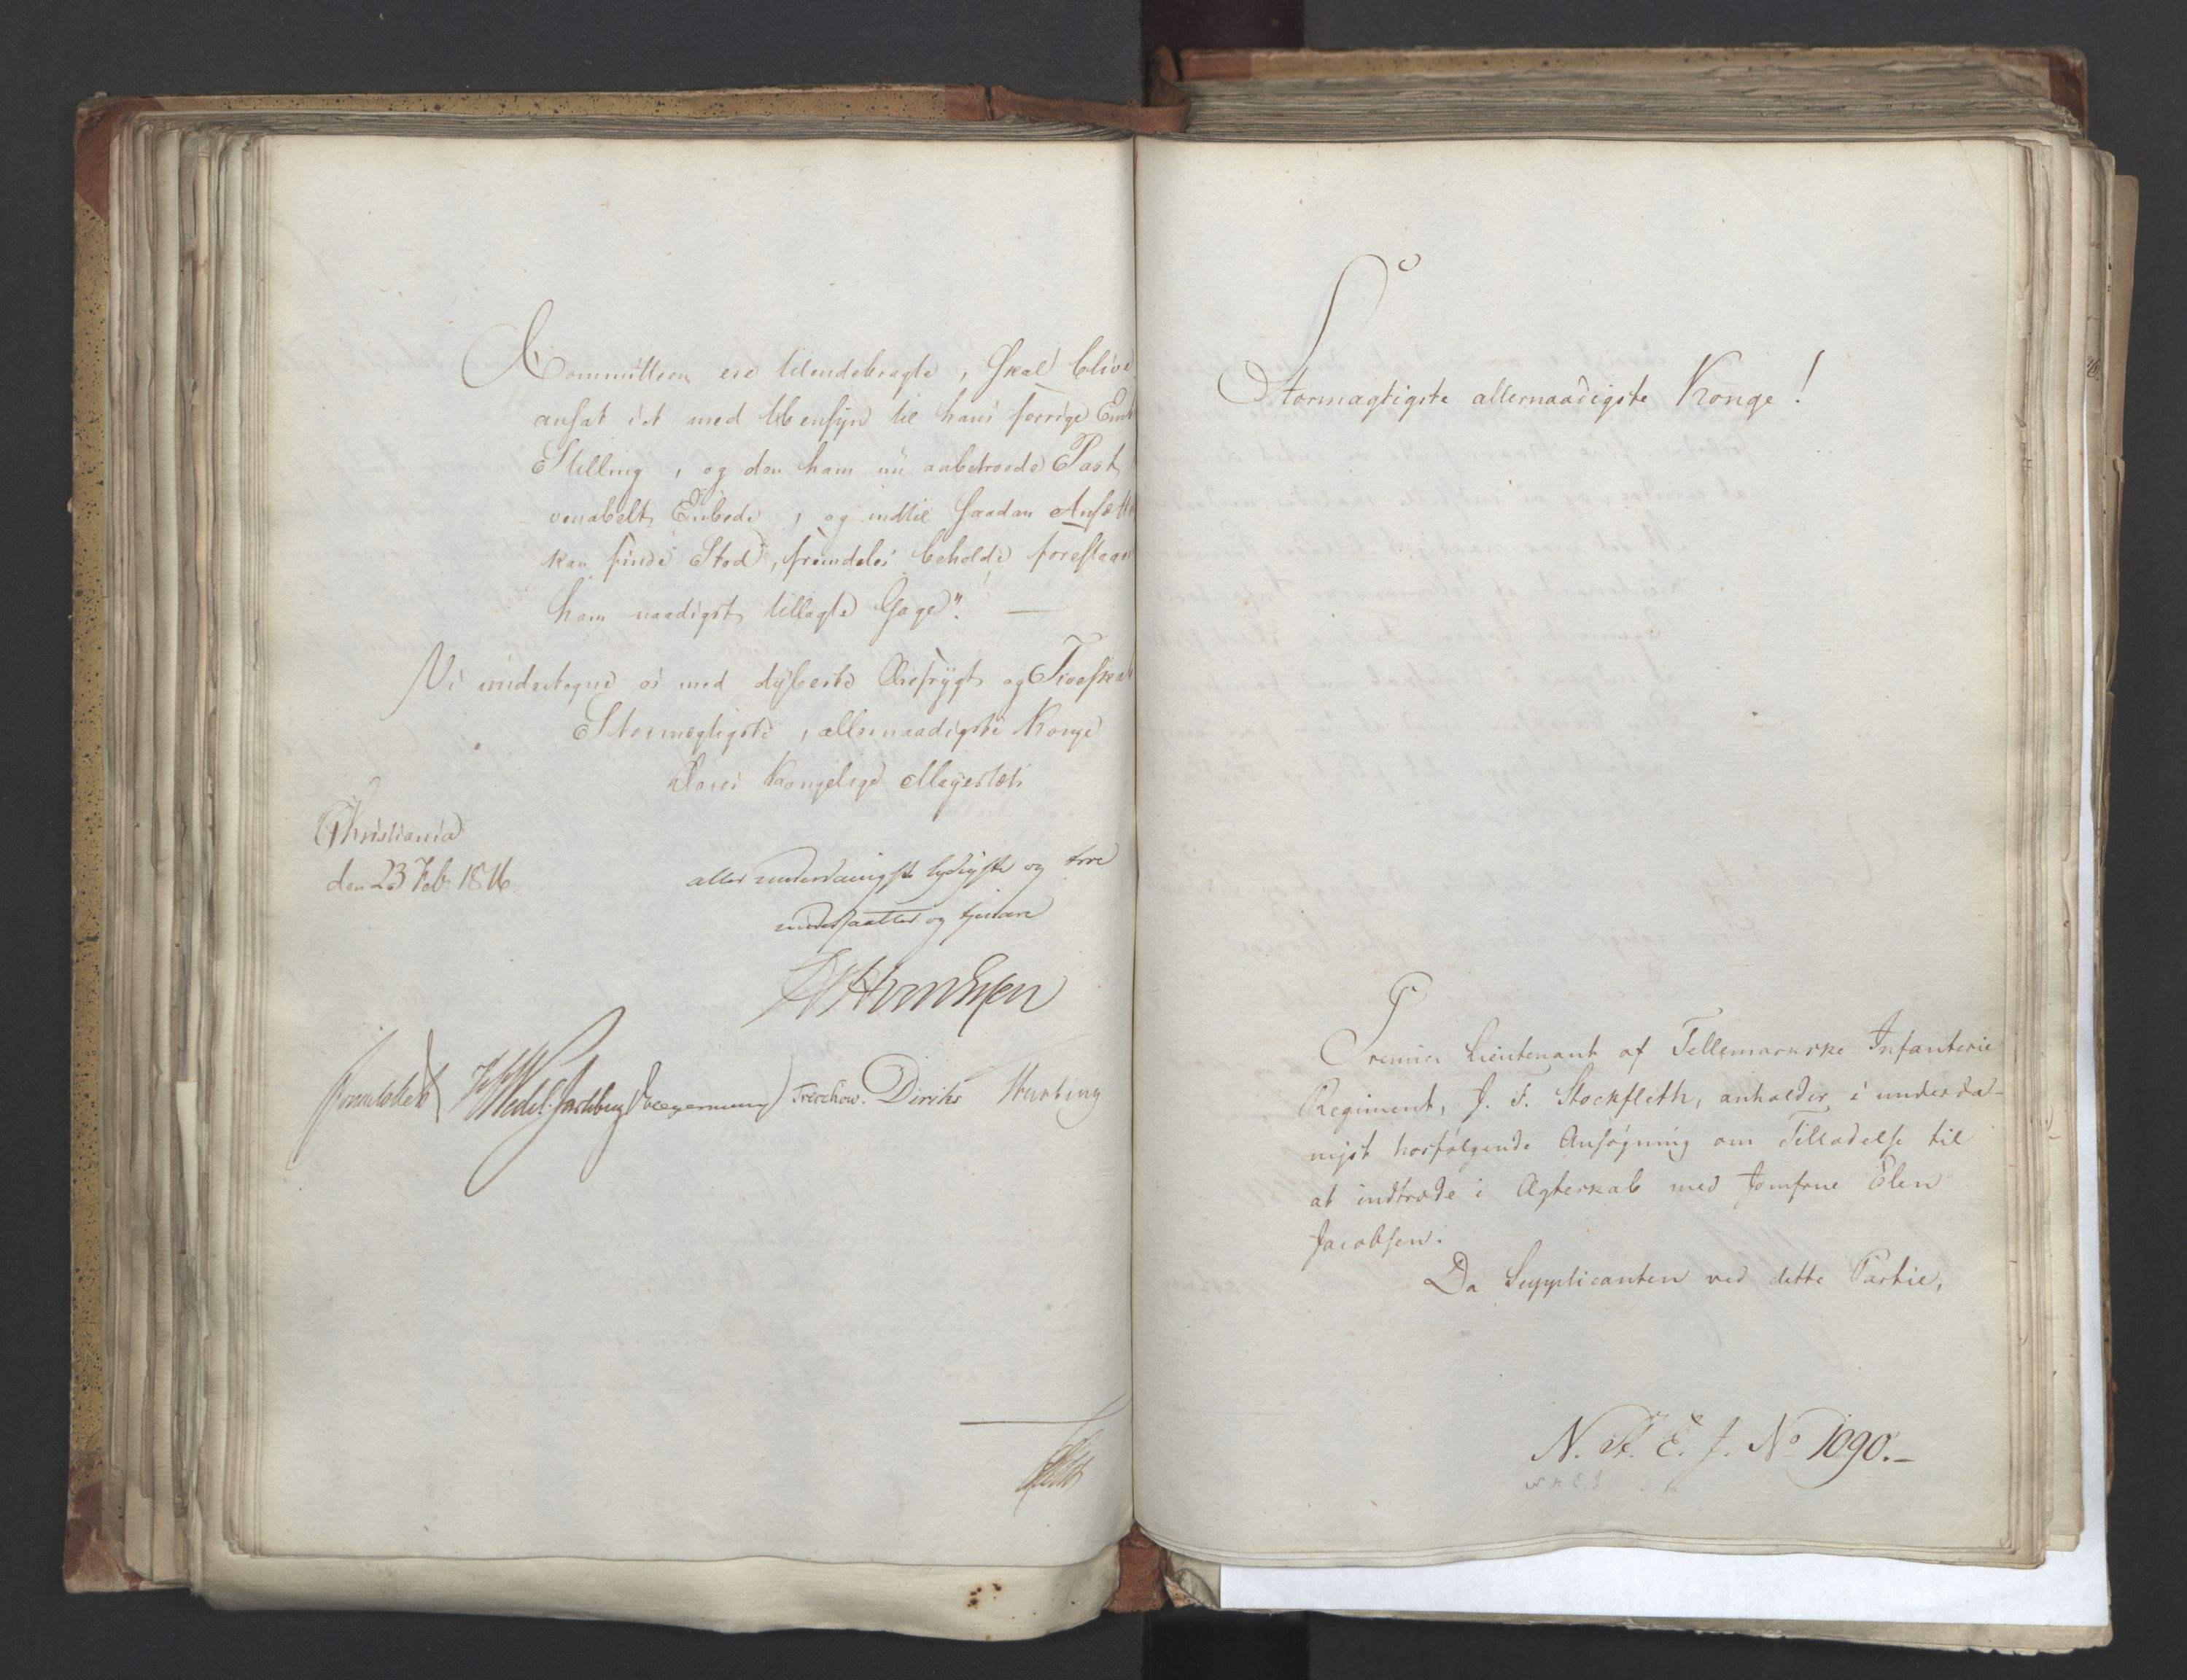 Committeen ere tilendebragte, skal blive
ansat i et med Hensyn til hans forrige Emb
Stilling, og den ham nu anbetroede Post
venabelt Embede, og indtil saadan Ansætt
kan finde Sted, fremdeles beholde
ham naadigst tillagte Gage". —
Vi undertegne os med dybeste Ærefrygt og Troeskab
Stormægtigste, allernaadigste Konge
Deres Kongelige Majestæts
Christiania
den 23 Feb: 1816
allerunderdanigste lydigste og troe
undersaatter og tjenere
Wedel Jarlsberg Treschow. Diriks
Stormægtigste allernaadigste Konge!
Premier Lieutenant af Tellemarkske Infanterie
Regiment, J. F. Stockfleth, anholder i underda-
nigst hosfølgende Ansøgning om Tilladelse til
at indtræde i Ægteskab med Jomfrue Elen
Jacobsen.
Da Supplicanten ved dette Partie,
N. A. E. J. No 1090.-